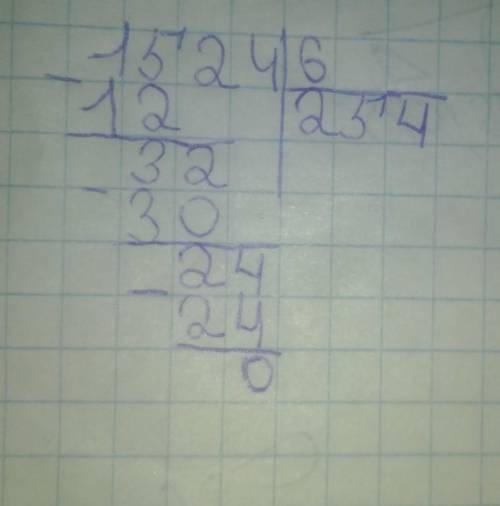 - 1524 | 6
12 | 254
- 32
30
- 24
24
0